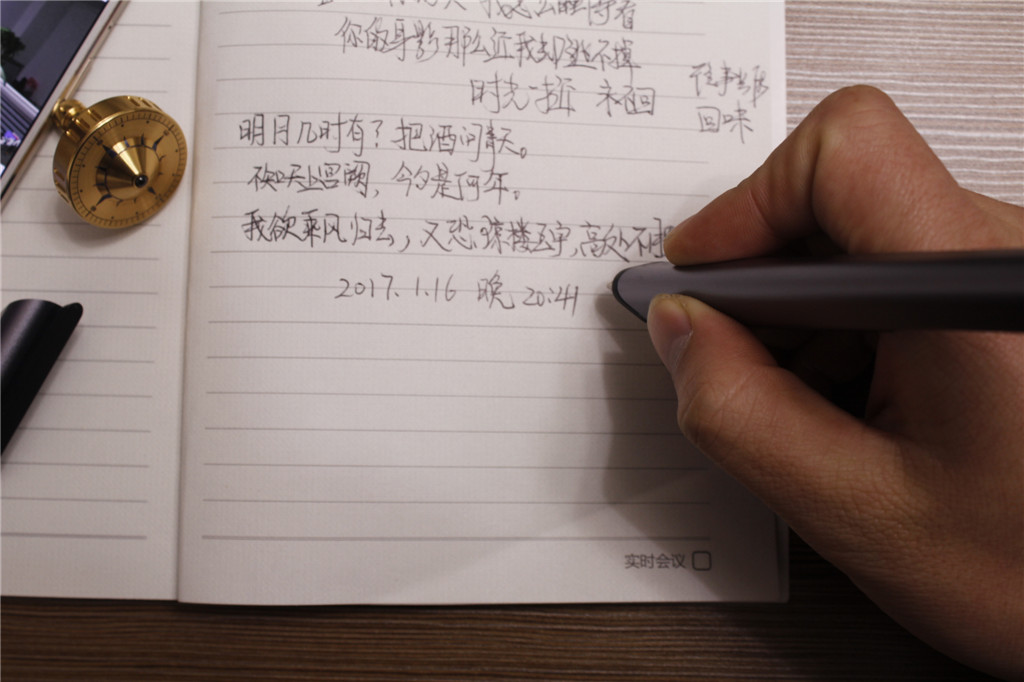 你的身影那么近我却
时光一 不回
往事
回味
明月几时有？把酒问青天。
不知天上宫阙，今夕是何年。
我欲乘风归去，又恐琼楼玉宇，高处不
2017.1.16 晚 20:41
实时会议